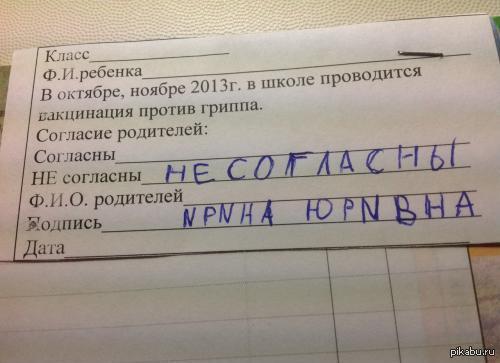 Класс
Ф.И.ребенка
В октябре, ноябре 2013г. в школе проводится
вакцинация против гриппа.
Согласие родителей:
Согласны
НЕ согласны НЕ СОГЛАСНЫ
Ф.И.О. родителей
Подпись NРNНА ЮРNВНА
Дата
pikabu.ru